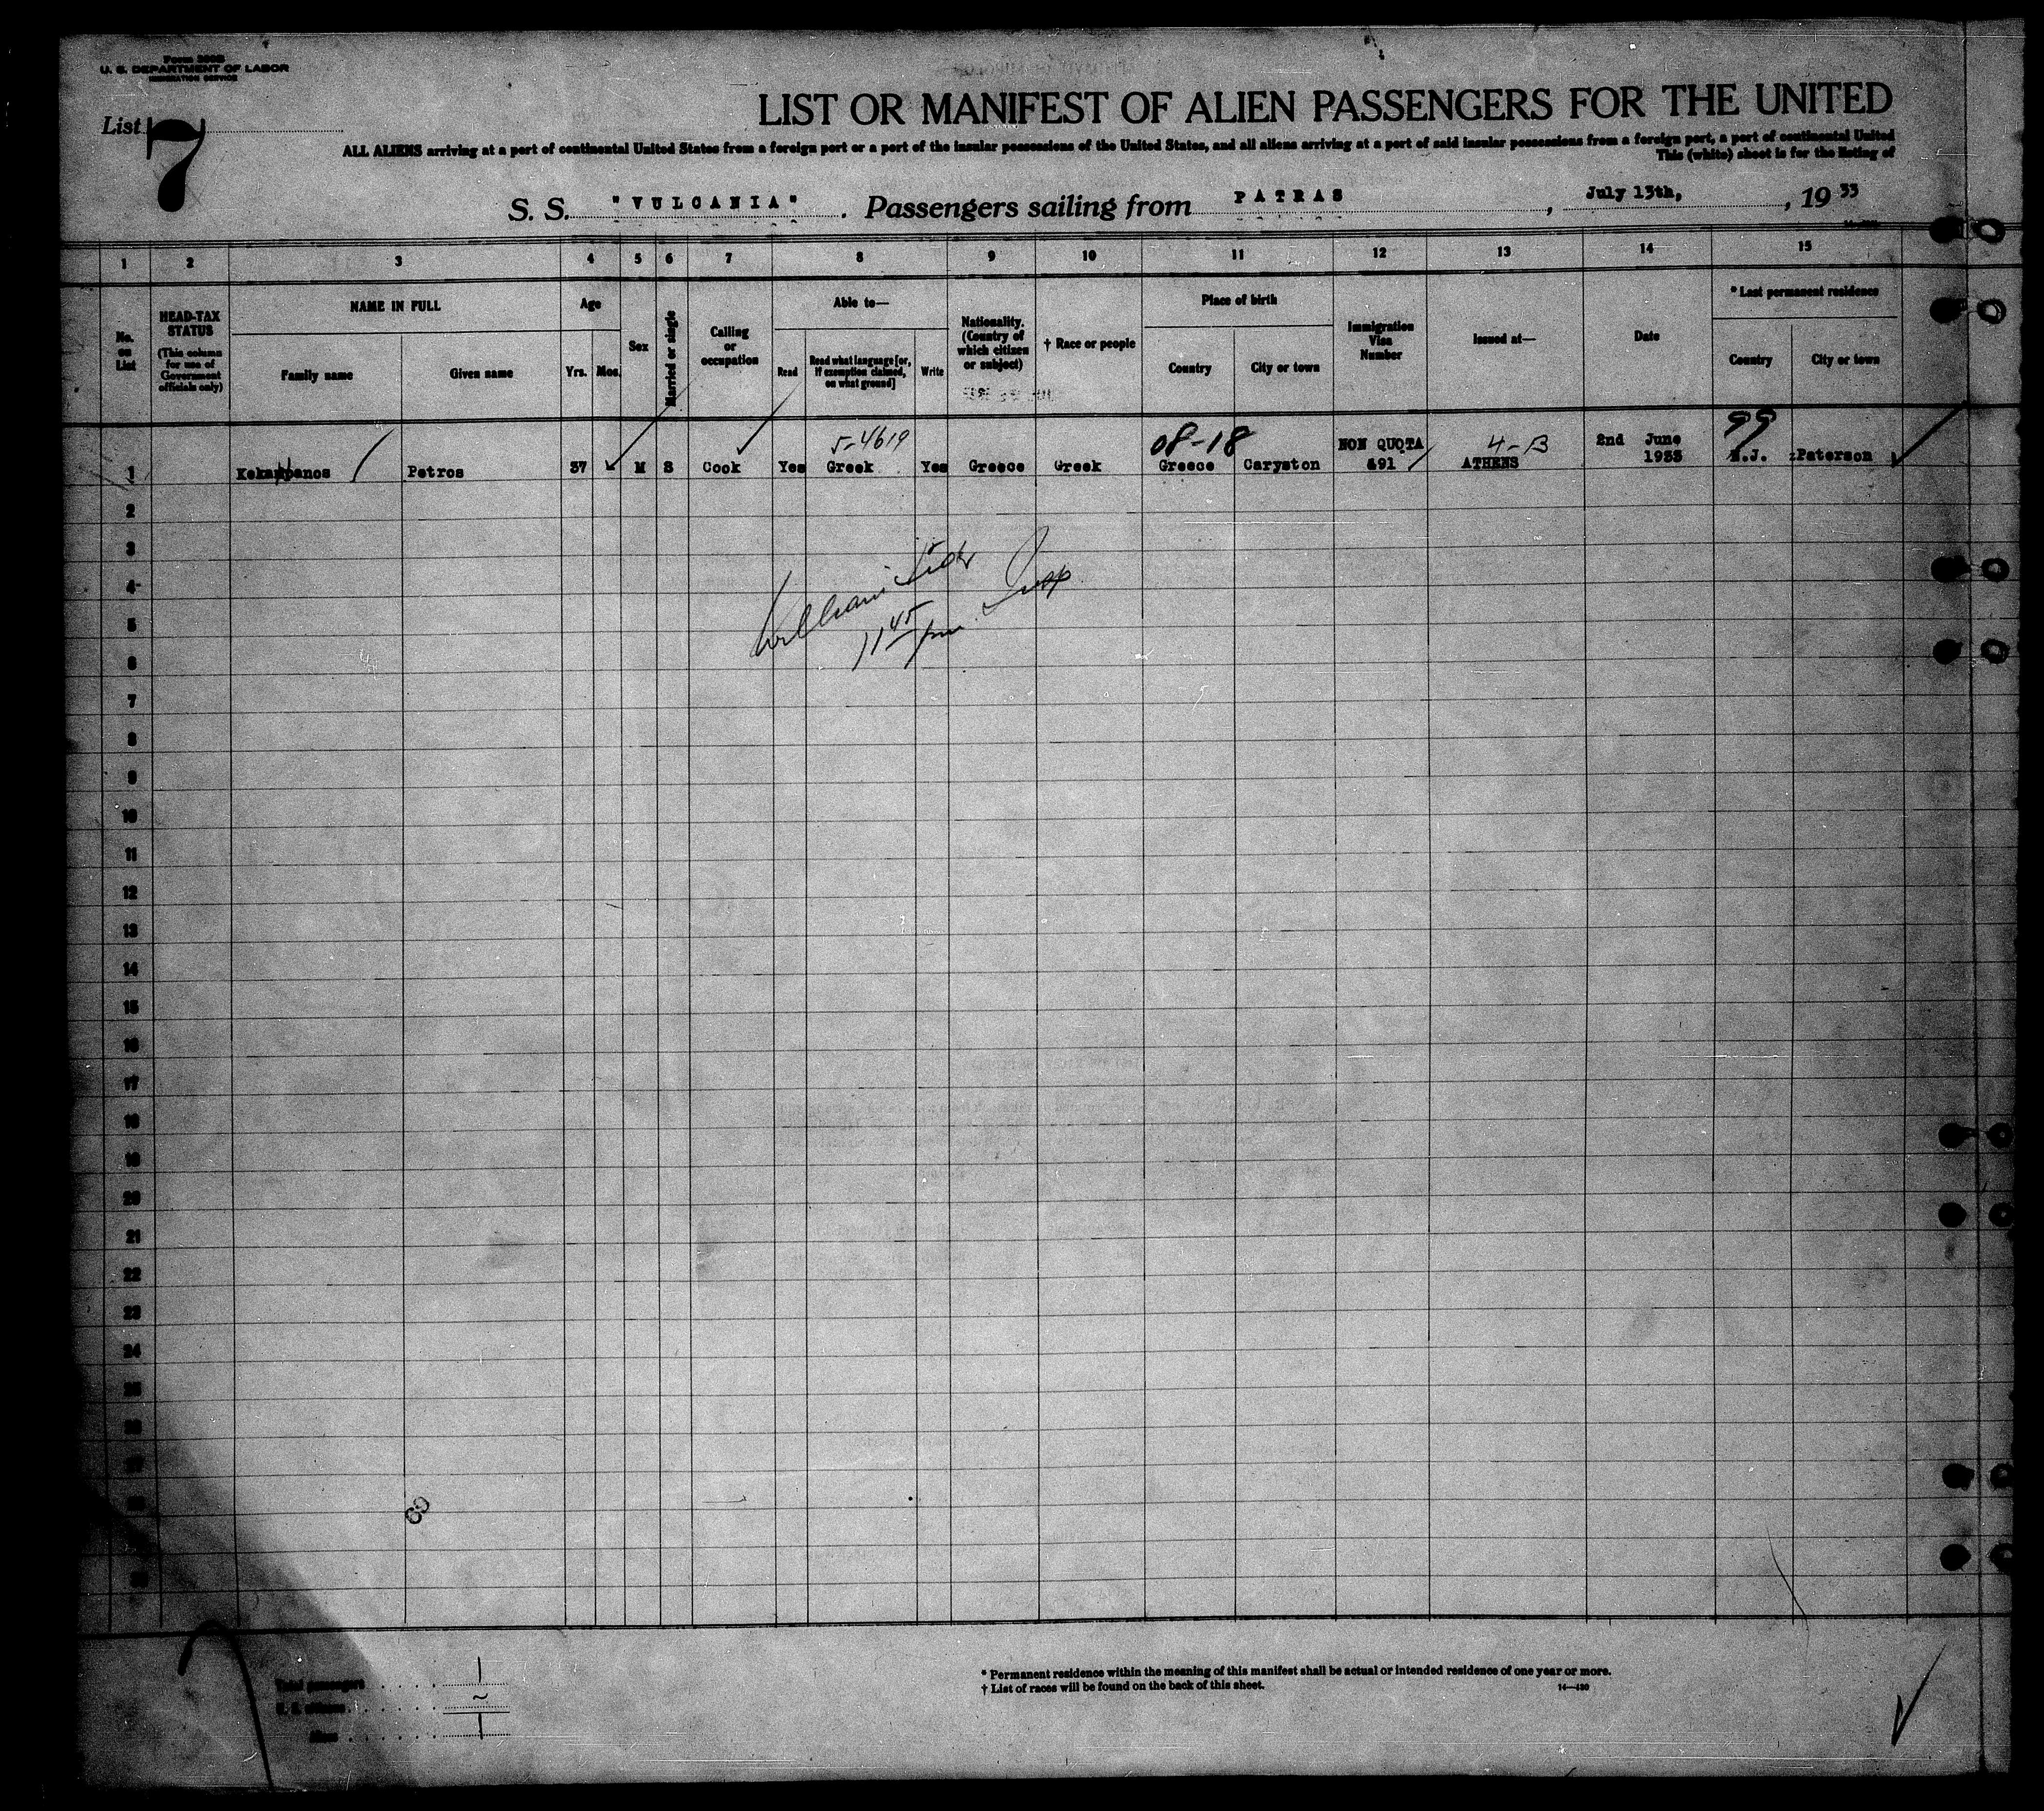 U. S. DEPARTMENT OF LABOR
IMMIGRATION SERVICE
List 7
LIST OR MANIFEST OF ALIEN PASSENGERS FOR THE UNITED
ALL ALIENS arriving at a port of continental United States from a foreign port or a port of the insular possessions of the United States, and all aliens arriving at a port of said insular possessions from a foreign port, a port of continental United
This (white) sheet is for the listing of
S. S. "VULCANIA". Passengers sailing from PATRAS, July 13th, 19 33
1 2 3 4 5 6 7 8 9 10 11 12 13 14 15
No. on List
HEAD-TAX STATUS
(This column for use of Government officials only)
NAME IN FULL
Family name
Given name
Age
Yrs. Mos.
Sex
Married or single
Calling or occupation
Able to—
Read
Read what language [or, if exemption claimed, on what ground]
Write
Nationality. (Country of which citizen or subject)
† Race or people
Place of birth
Country
City or town
Immigration Visa Number
Issued at—
Date
* Last permanent residence
Country
City or town
5-4619 08-18 NON QUOTA 4-B 2nd June 99
1 Petros 37 M S Cook Yes Greek Yes Greece Greek Greece Caryston 691 ATHENS 1933 N.J. Paterson
2
3
4
5
6
7
8
9
10
11
12
13
14
15
16
17
18
19
20
21
22
23
24
25
26
27
28
30
William
Insp
11 45 pm
69
Total passengers 1
U. S. citizens ~
Aliens 1
* Permanent residence within the meaning of this manifest shall be actual or intended residence of one year or more.
† List of races will be found on the back of this sheet.
14—430